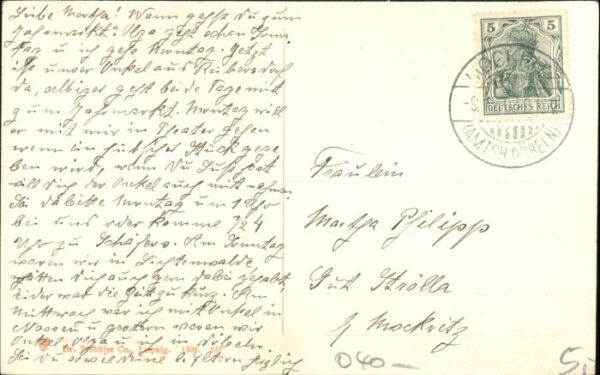 Liebe Martha! Wann gehst Du zum
Jahrmarkt? Olga geht schon Sonn
tag u ich gehe Montag. Jetzt
ist unser Onkel aus Reibersdorf
da, selbiger geht beide Tage mit
zum Jahrmarkt. Montag will
er mit mir in Theater gehen
wenn ein hübsches Stück gege
ben wird, wenn Du Lust hast
will dich der Onkel auch mit nehmen
Sei da bitte Montag um 1 Uhr
bei uns oder komme 1/2 4
Uhr zu Schäfers. Am Sonntag
waren wir in Lichtenwalde
hätten dich auch gern dabei gehabt
leider war die Zeit zu kurz. Am
Mittwoch war ich mit Onkel in
Nossen u gestern waren wir
Onkel, Olga u ich in Döbeln.
Sei Du sowie deine l. Eltern herzlich
Dr. Trenkler Co., Leipzig.
5 5
DEUTSCHES REICH
(AMTSH. DÖBELN)
Fräulein
Martha Philipp
Gut Strölla
b/ Mockritz
040—
5,-